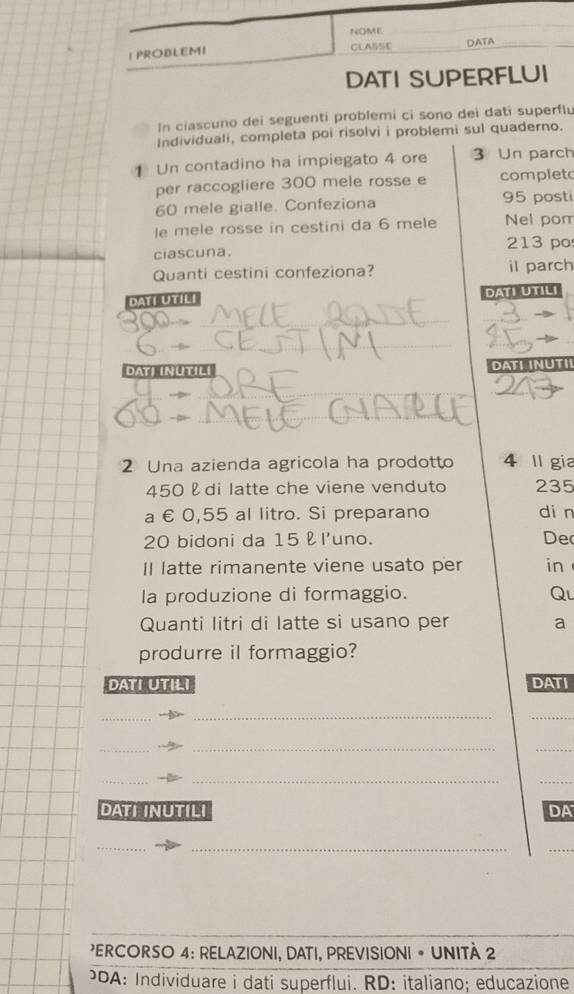 NOME
I PROBLEMI
CLASSE
DATA
DATI SUPERFLUI
In ciascuno dei seguenti problemi ci sono dei dati superflu
Individuali, completa poi risolvi i problemi sul quaderno.
1 Un contadino ha impiegato 4 ore
per raccogliere 300 mele rosse e
60 mele gialle. Confeziona
le mele rosse in cestini da 6 mele
ciascuna.
Quanti cestini confeziona?
DATI UTILI
300 → MELE ROSSE
6 → CESTINI
DATI INUTILI
4 → ORE
60 → MELE GIALLE
2 Una azienda agricola ha prodotto
450 ℓ di latte che viene venduto
a € 0,55 al litro. Si preparano
20 bidoni da 15 ℓ l'uno.
Il latte rimanente viene usato per
la produzione di formaggio.
Quanti litri di latte si usano per
produrre il formaggio?
DATI UTILI
→
→
→
DATI INUTILI
→
3 Un parch
completo
95 posti
Nel pom
213 pos
il parch
DATI UTILI
3 →
95 →
DATI INUTIL
213 →
4 Il gia
235
di n
Dec
in
Qu
a
DATI
DAT
PERCORSO 4: RELAZIONI, DATI, PREVISIONI • UNITÀ 2
ODA: Individuare i dati superflui. RD: italiano; educazione